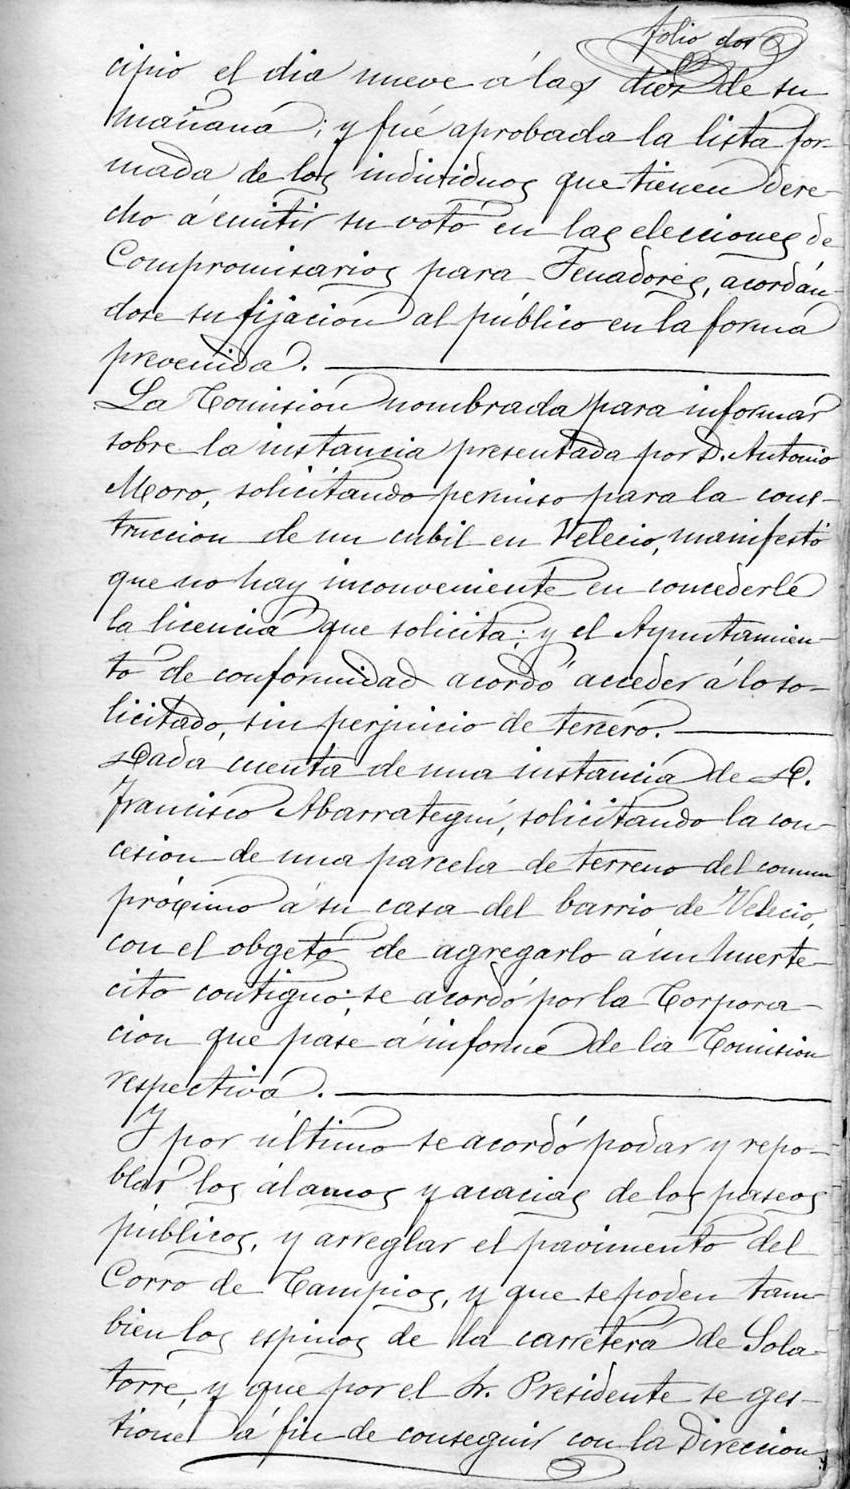 folio dos
cipio el dia nueve á las diez de su
mañana; y fué aprobada la lista for-
mada de los individuos que tienen dere-
cho á emitir su voto en las elecciones de
Compromisarios para Senadores, acordán-
dose su fijacion al público en la forma
prevenida.
La Comision nombrada para informar
sobre la instancia presentada por D. Antonio
Moro, solicitando permiso para la cons-
truccion de un cubil en Velecio, manifestó
que no hay inconveniente en concederle
la licencia que solicita; y el Ayuntamien-
to de conformidad acordó acceder á lo so-
licitado, sin perjuicio de tercero.
Dada cuenta de una instancia de D.
Francisco Abarrategui, solicitando la con-
cesion de una parcela de terreno del comun
próximo á su casa del barrio de Velecio,
con el obgeto de agregarlo á un huerte-
cito contiguo; se acordó por la Corpora-
cion que pase á informe de la Comision
respectiva.
Y por último se acordó podar y repo-
blar los álamos y acacias de los paseos
públicos, y arreglar el pavimento del
Corro de Campios, y que se poden tam-
bien los espinos de la carretera de Sola-
torre, y que por el Sr. Presidente se ges-
tione á fin de conseguir con la Direccion